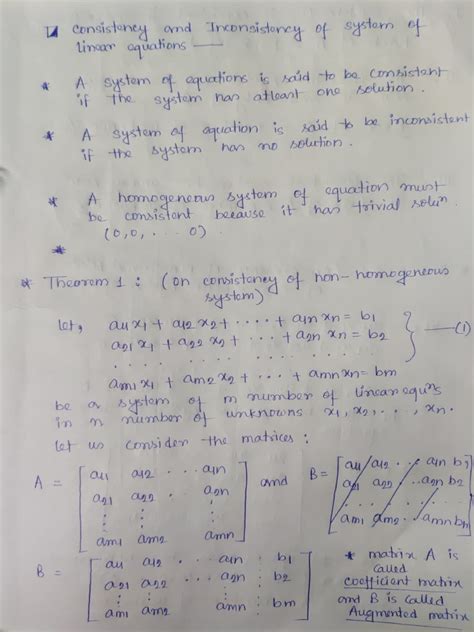 Consistency and Inconsistency of system of
linear equations —
* A system of equations is said to be consistent
if the system has atleast one solution.
* A system of equation is said to be inconsistent
if the system has no solution.
* A homogeneous system of equation must
be consistent because it has trivial solun.
(0,0, . . . 0)
*
* Theorem 1 : (on consistency of non-homogeneous
system)
let, a11x1 + a12x2 + . . . . + a1nxn = b1
a21x1 + a22x2 + . . . . + a2nxn = b2
. . . . . . . . . . . . . . . . . . . . . . } —(1)
am1x1 + am2x2 + . . . + amnxn = bm
be a system of m number of linear equns
in n number of unknowns x1, x2, . . . , xn.
let us consider the matrices :
A = [ a11 a12 . . . a1n
a21 a22 . . . a2n
: : :
am1 am2 amn ]
and
B = [ a11 a12 . . . a1n b1
a21 a22 . . . a2n b2
. . . . . . . . . .
am1 am2 . . . amn bm ]
B = [ a11 a12 . . . a1n : b1
a21 a22 . . . . a2n : b2
: : . . . . . : :
am1 am2 amn : bm ]
* matrix A is
called
coefficient matrix
and B is called
Augmented matrix